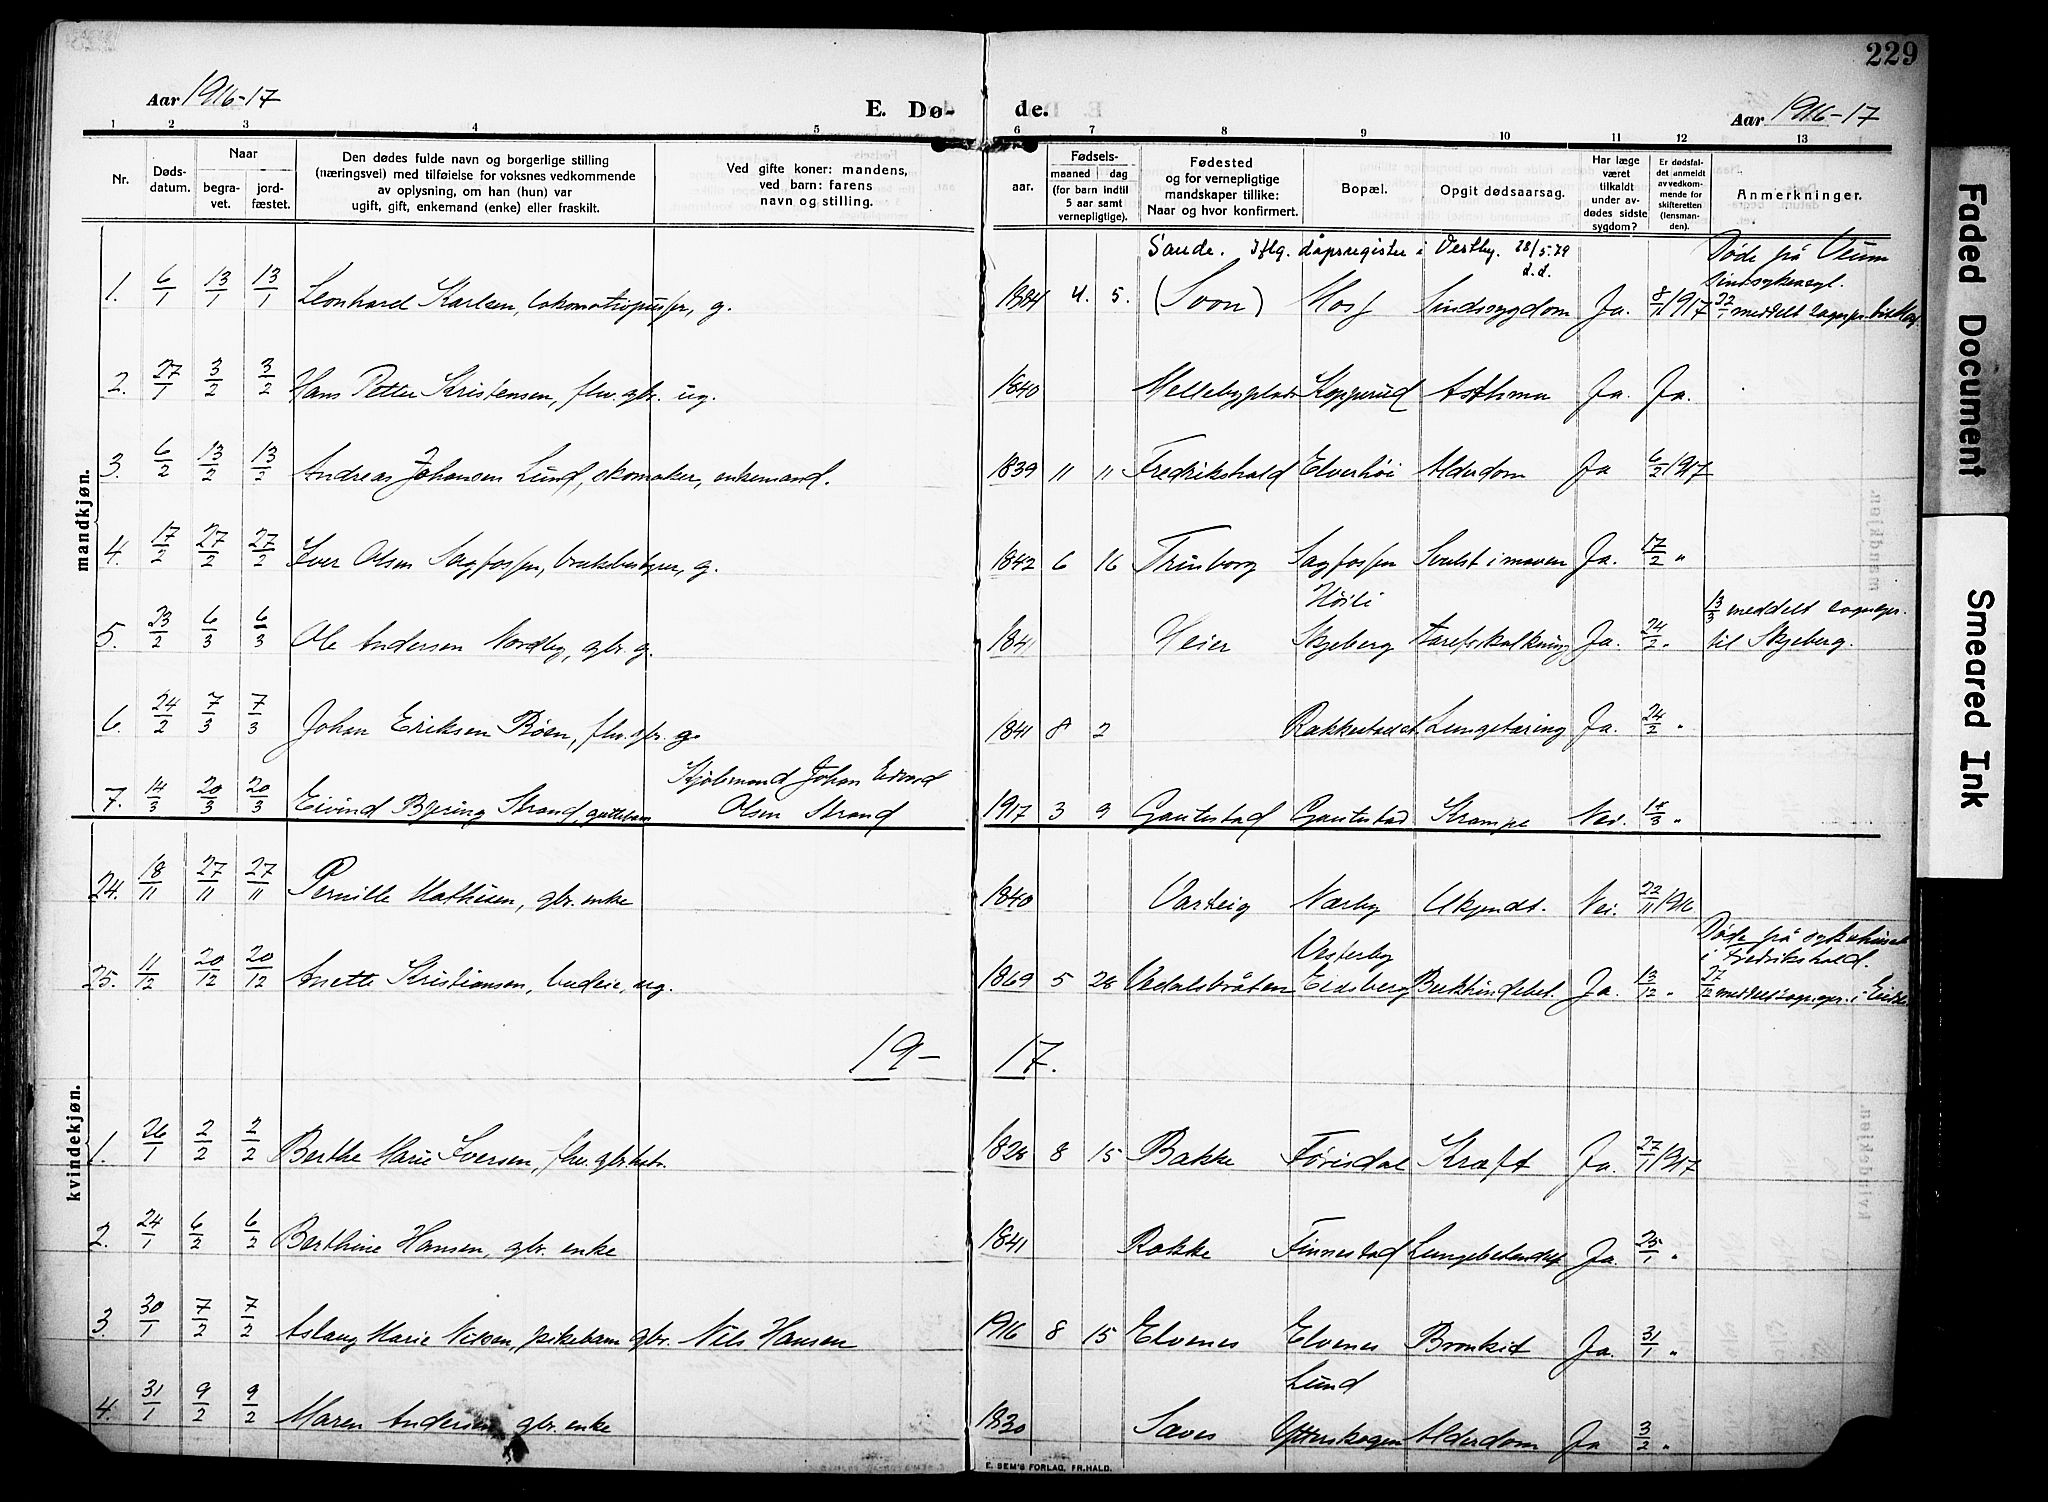 229
Aar 1916-17 E. Dø- de. Aar 1916-17
1 2 3 4 5 6 7 8 9 10 11 12 13
Nr. Døds-datum. Naar begra-vet. jord-fæstet. Den dødes fulde navn og borgerlige stilling (næringsvei) med tilføielse for voksnes vedkommende av oplysning, om han (hun) var ugift, gift, enkemand (enke) eller fraskilt. Ved gifte koner: mandens, ved barn: farens navn og stilling. aar. Fødsels- maaned dag (for barn indtil 5 aar samt vernepligtige). Fødested og for vernepligtige mandskaper tillike: Naar og hvor konfirmert. Bopæl. Opgit dødsaarsag. Har læge været tilkaldt under av-dødes sidste sygdom? Er dødsfal-det anmeldt av vedkom-mende for skifteretten (lensman-den). Anmerkninger.
mandkjøn.
Sande. Iflg. dåpsregister i Vestby. 28/5.79 d.d. Døde på Veum
1. 6/1 13/1 13/1 Leonhard Karlsen, g. 1884 4. 5. (Soon) Moss Sindssygdom Ja. 8/1 1917 meddelt
2. 27/1 3/2 3/2 Hans Petter Kristensen, fhv. gbr. ug. 1840 Kopperud Asthma Ja. Ja.
3. 6/2 13/2 13/2 Andreas Johansen Lund, skomaker, enkemand. 1839 11 11 Fredrikshald Elverhøi Alderdom Ja 6/2 1917
4. 17/2 27/2 27/2 Iver Olsen Sagfossen, bruksbestyrer, g. 1842 6 16 Trinborg Sagfossen Svulst i maven Ja. 17/2 "
Høili 13/3 meddelt sognepr.
5. 23/2 6/3 6/3 Ole Andersen Nordby, gbr. g. 1841 Heier Skjeberg Aareforkalkning Ja. 24/2 " til Skjeberg.
6. 24/2 7/3 7/3 Johan Eriksen Røen, fhv. gbr. g. 1841 8 2 Lungetæring Ja. 24/2 "
Johan Edvard
7. 14/3 20/3 20/3 Eivind Bjering Strand, guttebarn Olsen Strand 1917 3 9 Gautestad Gautestad Krampe Nei. "
kvindekjøn.
24. 18/11 27/11 27/11 Pernille Mathisen, gbr. enke 1840 Varteig Nærby Ukjendt. Nei. 22/11 1916
Vesterby Døde på sykehuset i Fredrikshald.
25. 11/12 20/12 20/12 Anette Kristiansen, budeie, ug. 1869 5 28 Vedalsbråten Eidsberg Ja. 13/12 " 27/12 meddelt sognepr. i
19- 17.
1. 26/1 2/2 2/2 Berthe Marie Iversen, 1828 8 15 Bakke Førisdal Kræft Ja. 27/1 1917
2. 24/1 6/2 6/2 Berthine Hansen, gbr. enke 1841 Rokke Finnestad Ja. 25/1 "
3. 30/1 7/2 7/2 Aslaug Marie Nilsen, pikebarn gbr. Nils Hansen 1916 8 15 Elvenes Elvenes Bronkit Ja. 31/1 "
Lund
4. 31/1 9/2 9/2 Maren Andersen, gbr. enke 1830 Sæves Ytterskogen Alderdom Ja 3/2 "
E. SEM'S FORLAG, FR.HALD.
Faded Document
Smeared Ink